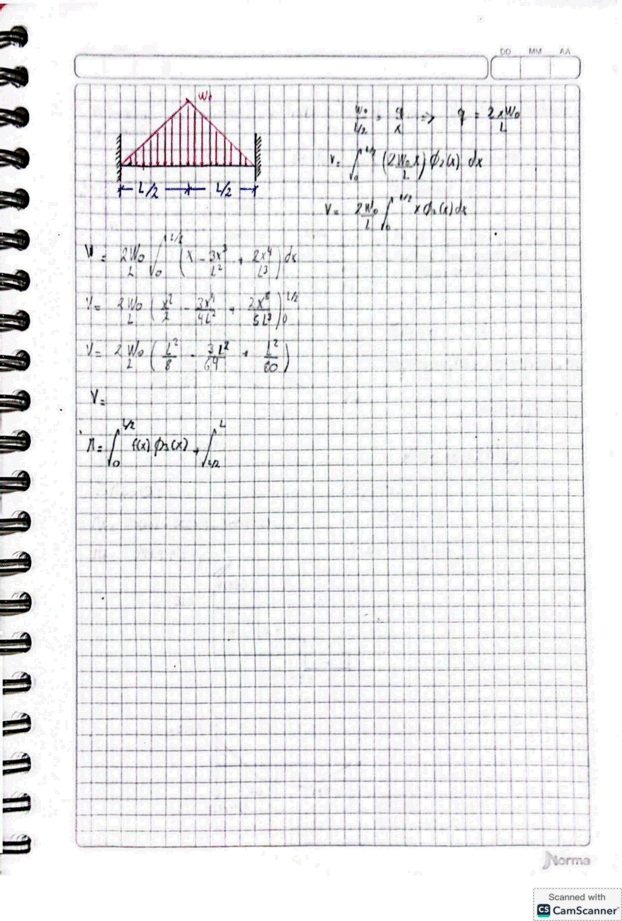 DD MM AA
W₀
L/2 L/2
W₀/(L/2) = q/x => q = 2xW₀/L
V = ∫₀^(L/2) (2W₀x/L) ϕ₂(x) dx
V = 2W₀/L ∫₀^(L/2) x ϕ₂(x) dx
V = 2W₀/L ∫₀^(L/2) (x - 3x³/L² + 2x⁴/L³) dx
V = 2W₀/L (x²/2 - 3x⁴/4L² + 2x⁵/5L³)₀^(L/2)
V = 2W₀/L (L²/8 - 3L²/64 + L²/80)
V =
∫₀^(L/2) f(x) ϕ₂(x) + ∫_(L/2)^L
Norma
Scanned with
CS CamScanner